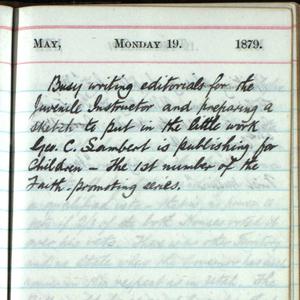 May, Monday 19. 1879.
Busy writing editorials for the
Juvenile Instructor and preparing a
sketch to put in the little work
Geo. C. Lambert is publishing for
Children – The 1st number of the
Faith-promoting series.